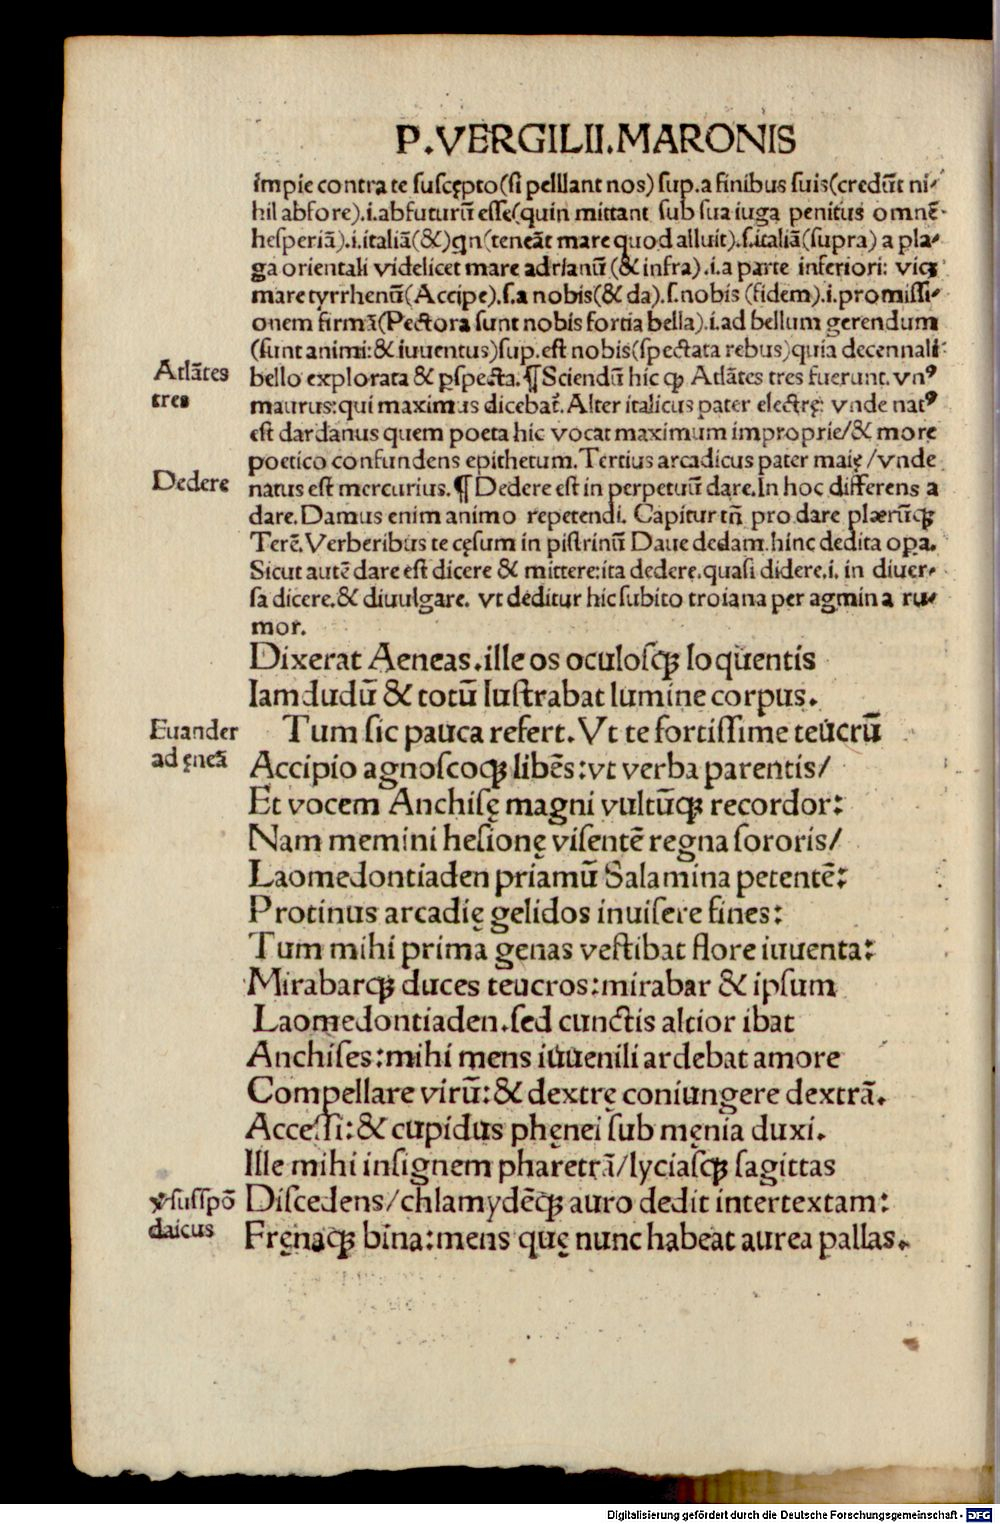 P.VERGILII.MARONIS
impie contra te suscępto(si pelllant nos) sup.a finibus suis(credūt ni-
hil abfore).i.abfuturū esse(quin mittant sub sua iuga penitus omnē
hesperiā).i.italiā(&)qn(teneāt mare quod alluit).s.italiā(supra) a pla-
ga orientali videlicet mare adrianū(& infra).i.a parte inferiori: vicꝫ
mare tyrrhenū(Accipe).s.a nobis(& da).s.nobis (fidem).i.promissi-
onem firmā(Pectora sunt nobis fortia bella).i.ad bellum gerendum
(sunt animi:& iuuentus)sup.est nobis(spectata rebus)quia decennali
Atlātes
tres
bello explorata & ꝑspecta.¶Sciendū hic ꝙ Atlātes tres fuerunt.vnꝰ
maurus:qui maximus dicebat̄.Alter italicus pater electrę: vnde natꝰ
est dardanus quem poeta hic vocat maximum improprie/& more
poetico confundens epithetum.Tertius arcadicus pater maię/vnde
Dedere
natus est mercurius.¶Dedere est in perpetuū dare.In hoc differens a
dare.Damus enim animo repetendi. Capitur tñ pro dare plærūqꝫ
Terē.Verberibus te cęsum in pistrinū Daue dedam.hinc dedita oꝑa.
Sicut autē dare est dicere & mittere:ita dedere.quasi didere.i. in diuer-
sa dicere.& diuulgare. vt deditur hic subito troiana per agmina ru-
mor.
Dixerat Aeneas.ille os oculosqꝫ loquentis
Iamdudū & totū lustrabat lumine corpus.
Euander
ad ęneā
Tum sic pauca refert.Vt te fortissime teucrū
Accipio agnoscoqꝫ libēs:vt verba parentis/
Et vocem Anchisę magni vultūqꝫ recordor:
Nam memini hesionę visentē regna sororis/
Laomedontiaden priamū Salamina petentē:
Protinus arcadię gelidos inuisere fines:
Tum mihi prima genas vestibat flore iuuenta:
Mirabarqꝫ duces teucros:mirabar & ipsum
Laomedontiaden.sed cunctis altior ibat
Anchises:mihi mens iuuenili ardebat amore
Compellare virū:& dextrę coniungere dextrā.
Accessi:& cupidus phęnei sub męnia duxi.
Ille mihi insignem pharetrā/lyciasqꝫ sagittas
daicus
Discedens/chlamydēqꝫ auro dedit intertextam:
Fręnaqꝫ bina:mens quę nunc habeat aurea pallas.
Digitalisierung gefördert durch die Deutsche Forschungsgemeinschaft - DFG